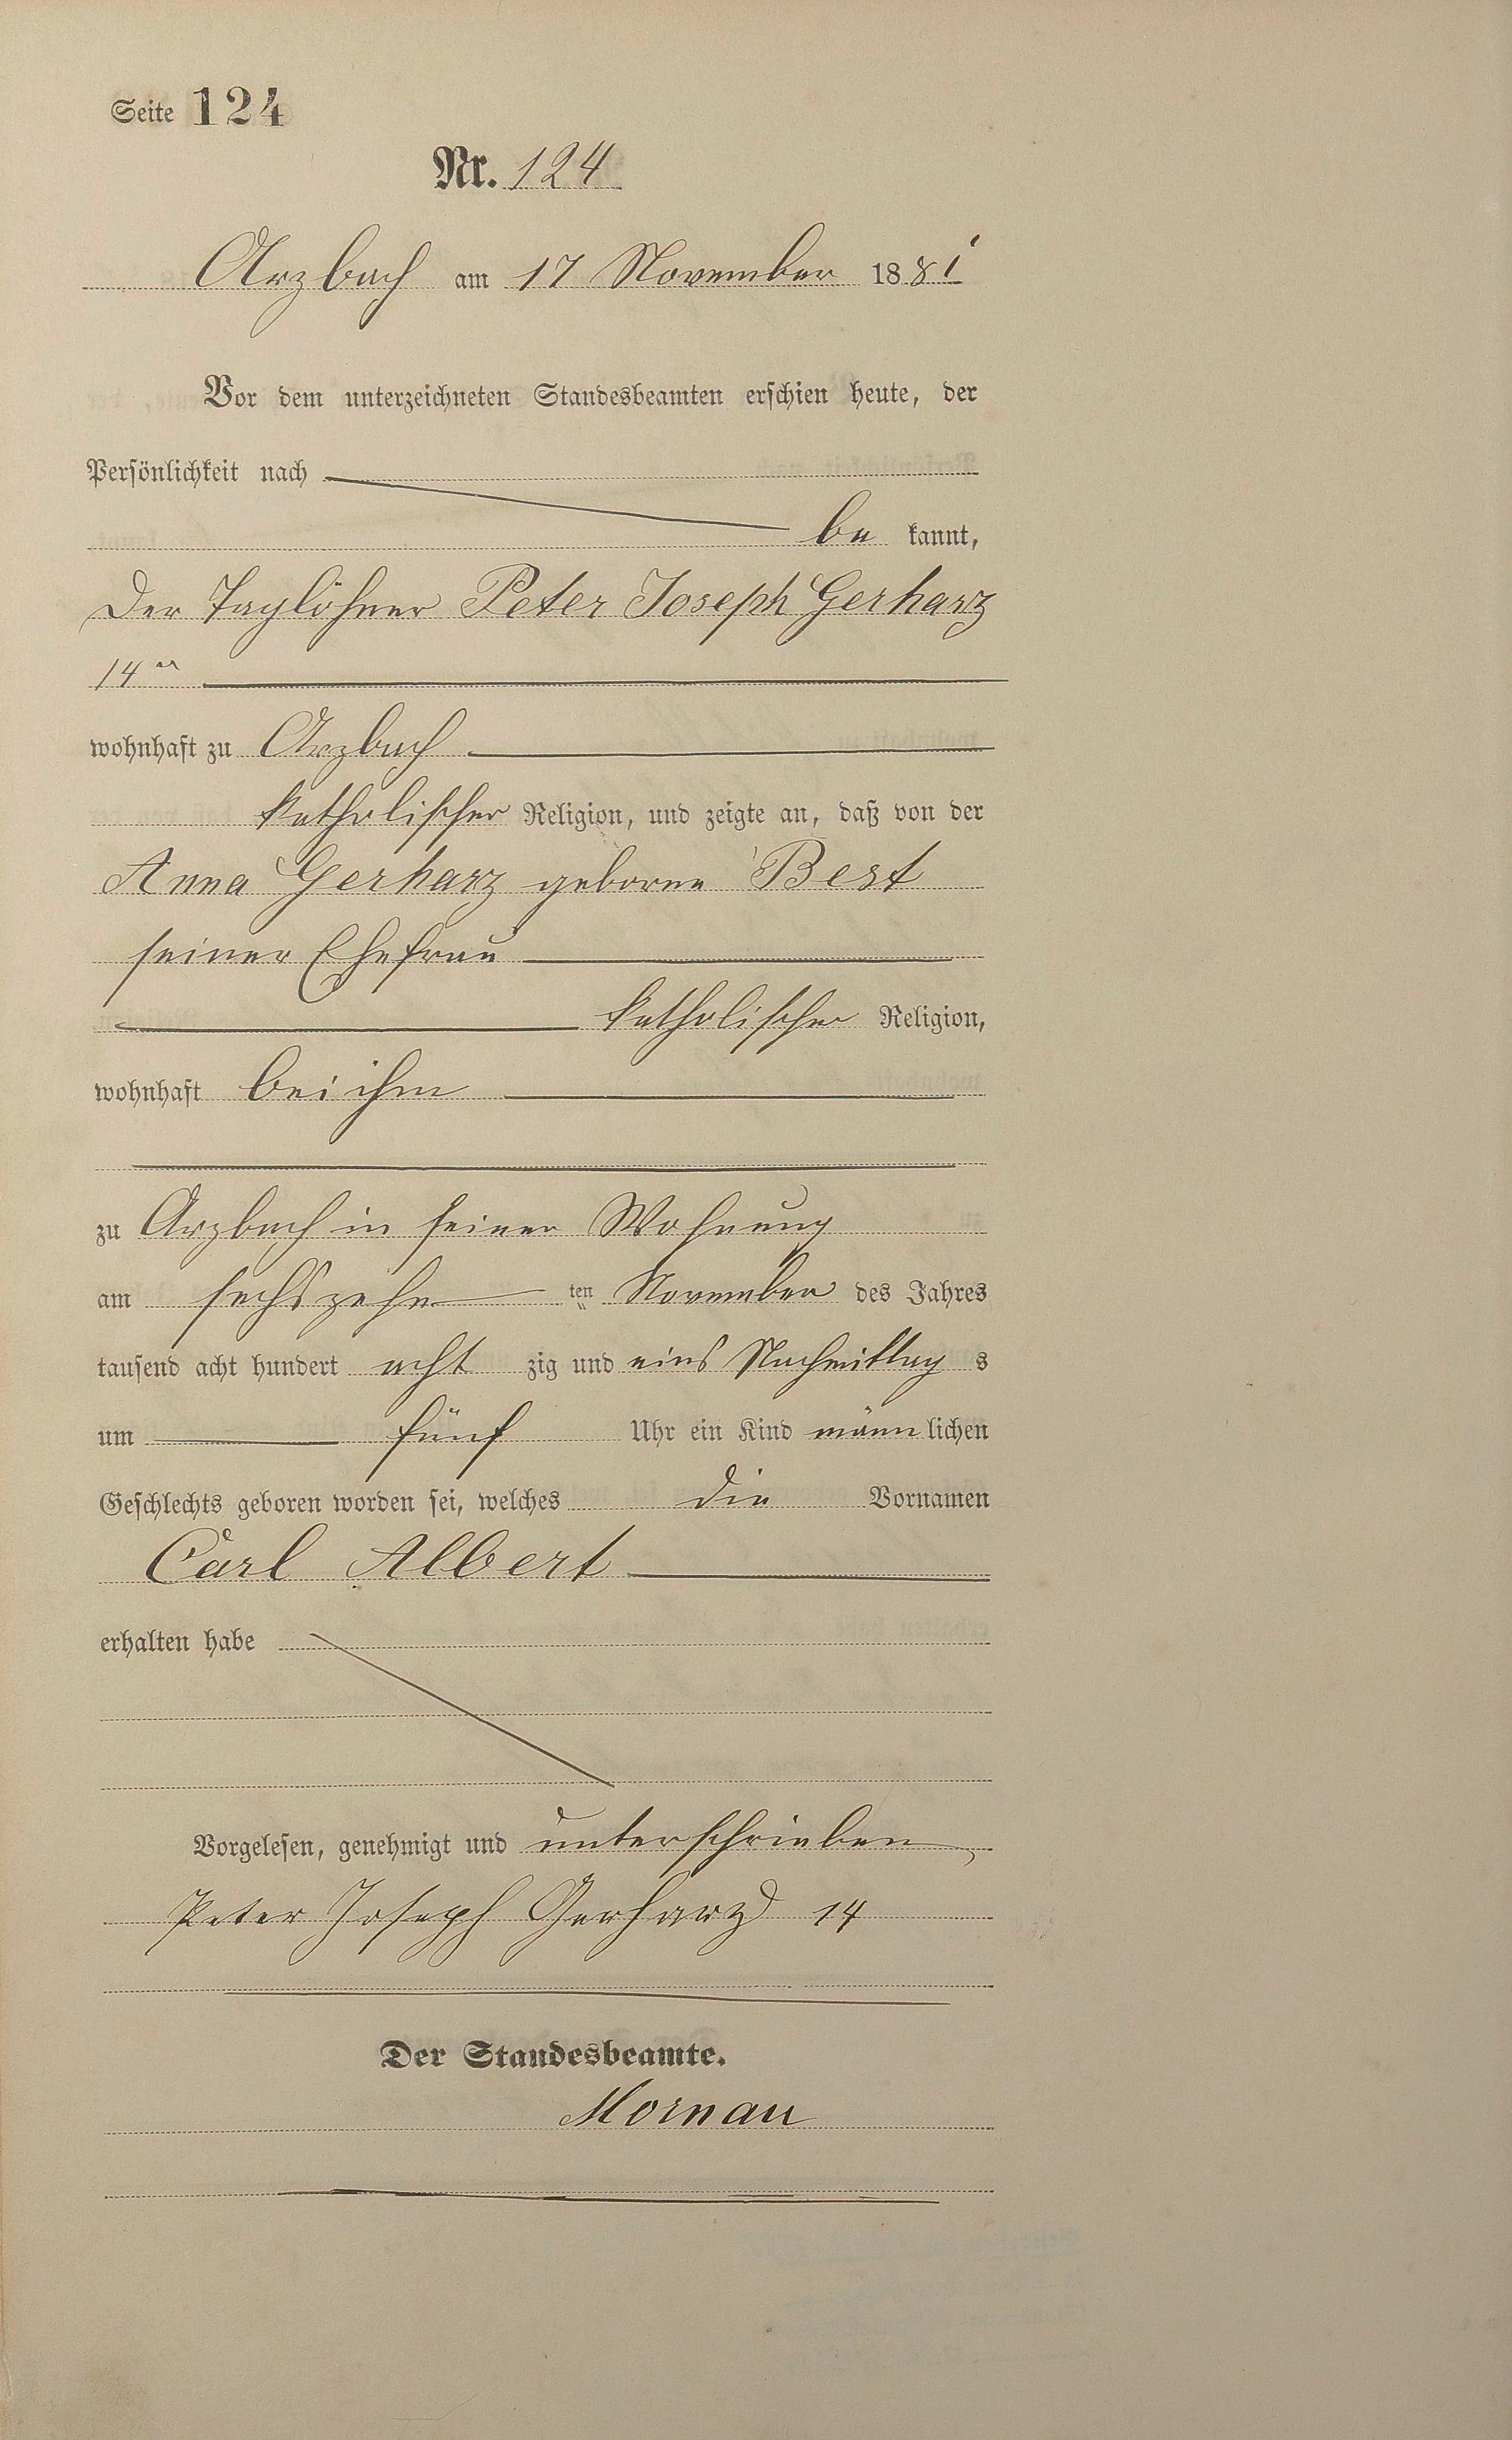 Seite 124
Nr. 124
Arzbach am 17 November 1881
Vor dem unterzeichneten Standesbeamten erschien heute, der
Persönlichkeit nach
be kannt,
der Taglöhner Peter Joseph Gerharz
14er
wohnhaft zu Arzbach
katholischer Religion, und zeigte an, daß von der
Anna Gerharz geborne Best
seiner Ehefrau
katholischer Religion,
wohnhaft bei ihm
zu Arzbach in seiner Wohnung
am sechszehn ten November des Jahres
tausend acht hundert acht zig und eins Nachmittag s
um fünf Uhr ein Kind männ lichen
Geschlechts geboren worden sei, welches die Vornamen
Carl Albert
erhalten habe
Vorgelesen, genehmigt und unterschrieben
Peter Joseph Gerharz 14
Der Standesbeamte.
Mornau